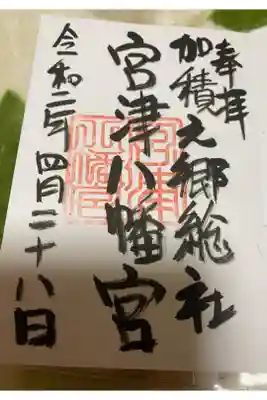 奉拝
加積之郷総社
宮津八幡宮
令和二年 四月二十八日